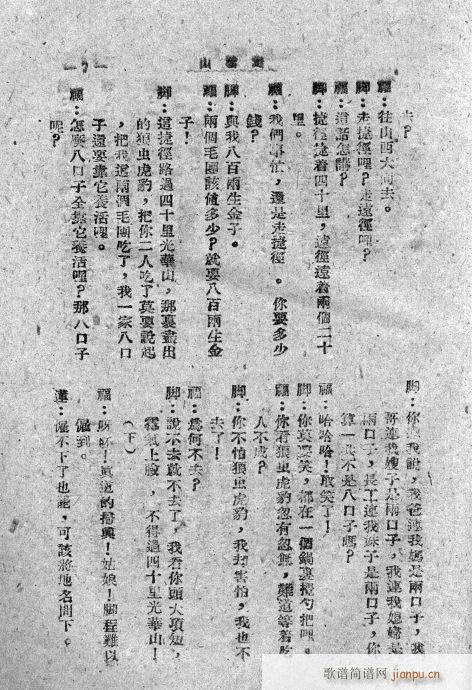 去？
福：往山西大同去。
脚：走捷徑哩？走遠徑哩？
福：這話怎講？
脚：捷徑捷着四十里，遠徑遠着兩個二十
里。
福：我們事忙，還是走捷徑。你要多少
錢？
脚：與我八百兩生金子。
福：兩個毛團該値多少？就要八百兩生金
子！
脚：這捷徑路過四十里光華山，那裏盡出
的狼虫虎豹，把你二人吃了莫要說起
，把我這兩個毛團吃了，我一家八口
子還要靠它養活哩。
福：怎麽八口子全靠它養活哩？那八口子
呢？
脚：你聽我說，我爸連我媽是兩口子，我
哥連我嫂子是兩口子，我連我媳婦是
兩口子，長工連我妹子是兩口子，你
算一共不是八口子嗎？
福：哈哈哈！取笑了！
脚：你莫要笑，都在一個鍋裏攪勺把哩。
福：你看狼虫虎豹忽有忽無，難道等着吃
人不成？
脚：你不怕狼虫虎豹，我却害怕，我也不
去了！
福：爲何不去？
脚：說不去就不去了，我看你頭大項短，
霧氣上臉，不得過四十里光華山！
（下）
福：呀呀！眞道的掃興！姑娘！脚程難以
僱到。
蓮：僱不下了也罷，可該將地名問下。
歌谱简谱网
jianpu.cn